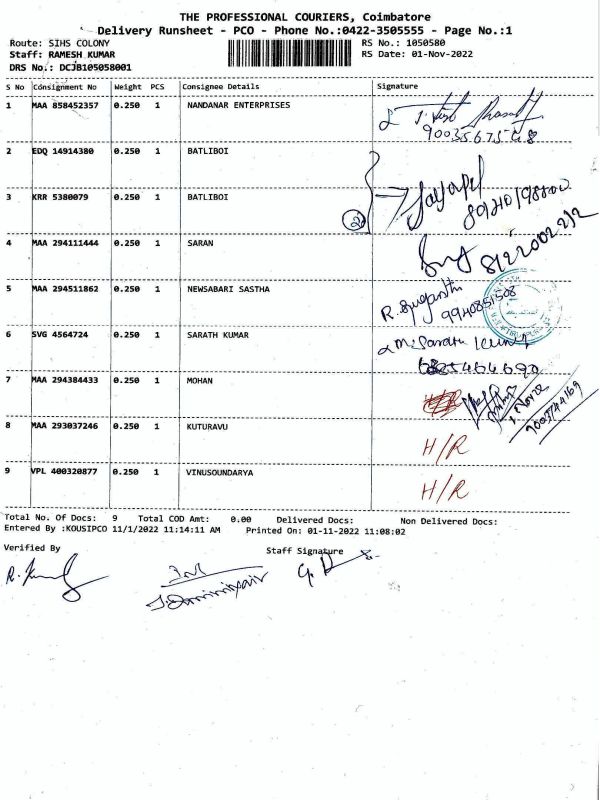 THE PROFESSIONAL COURIERS, Coimbatore
Delivery Runsheet - PCO - Phone No.:0422-3505555 - Page No.:1
Route: SIHS COLONY
Staff: RAMESH KUMAR
DRS No.: DCJB105058001
RS No.: 1050580
RS Date: 01-Nov-2022
S No Consignment No Weight PCS Consignee Details Signature
1 MAA 858452357 0.250 1 NANDANAR ENTERPRISES
2 EDQ 14914380 0.250 1 BATLIBOI
3 KRR 5380079 0.250 1 BATLIBOI
2
4 MAA 294111444 0.250 1 SARAN
5 MAA 294511862 0.250 1 NEWSABARI SASTHA
R. Suganthi
9940851508
6 SVG 4564724 0.250 1 SARATH KUMAR
M. Sarath Kumar
7 MAA 294384433 0.250 1 MOHAN
8 MAA 293037246 0.250 1 KUTURAVU H/R
9 VPL 400320877 0.250 1 VINUSOUNDARYA H/R
Total No. Of Docs: 9 Total COD Amt: 0.00 Delivered Docs: Non Delivered Docs:
Entered By :KOUSIPCO 11/1/2022 11:14:11 AM Printed On: 01-11-2022 11:08:02
Verified By Staff Signature